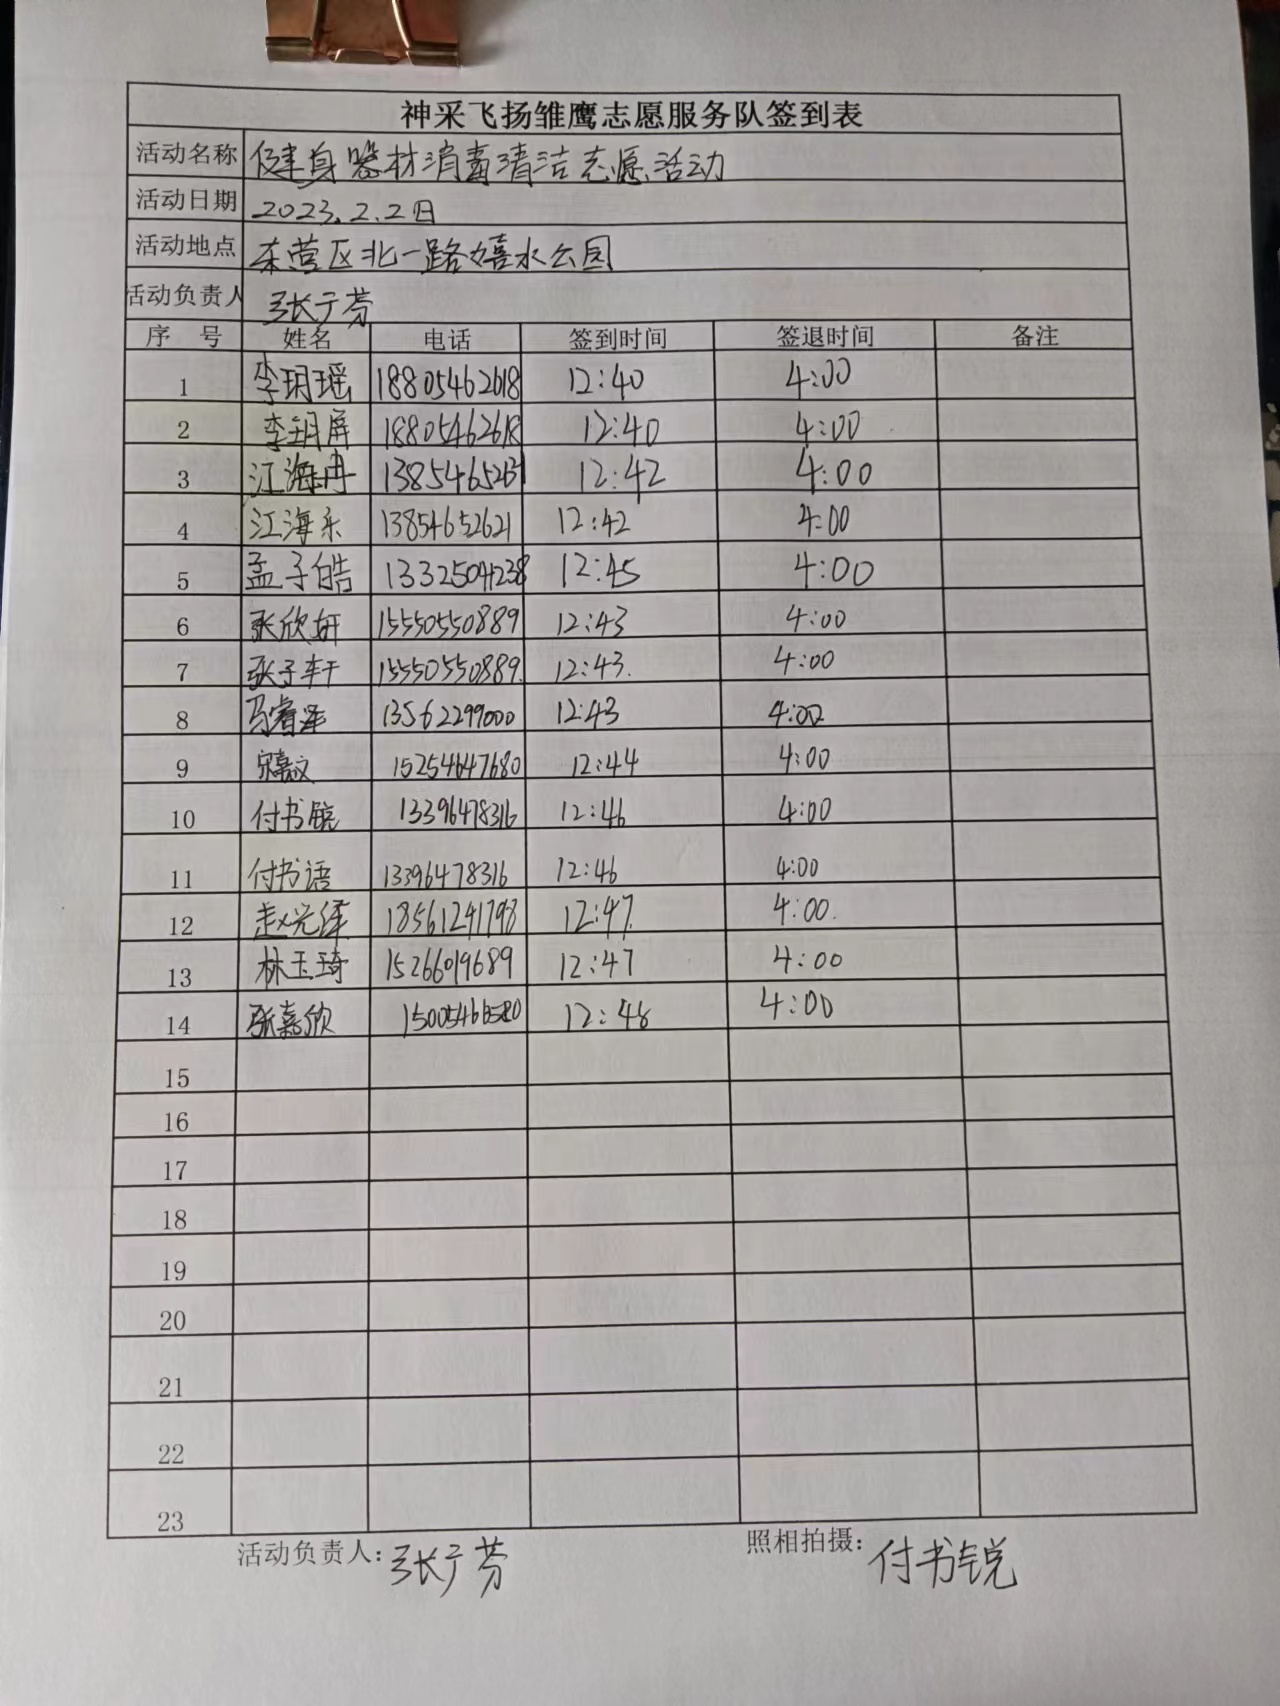 神采飞扬雏鹰志愿服务队签到表
活动名称 健身器材消毒清洁志愿活动
活动日期 2023.2.2日
活动地点 东营区北一路嬉水公园
活动负责人 张广芬
序 号 姓名 电话 签到时间 签退时间 备注
1 李玥瑶 18805462618 12:40 4:00
2 李玥屏 18805462618 12:40 4:00
3 江海冉 12:42 4:00
4 江海乐 13854652621 12:42 4:00
5 孟子皓 13325041238 12:45 4:00
6 张欣妍 15550550889 12:43 4:00
7 张子轩 15550550889. 12:43. 4:00
8 马睿泽 13562299000 12:43 4:00
9 宋嘉汶 15254647680 12:44 4:00
10 付书锐 13396478316 12:46 4:00
11 付书语 13396478316 12:46 4:00
12 赵光绎 18561241798 12:47. 4:00.
13 林玉琦 15266019689 12:47 4:00
14 张嘉欣 12:48 4:00
15
16
17
18
19
20
21
22
23
活动负责人：张广芬 照相拍摄：付书锐